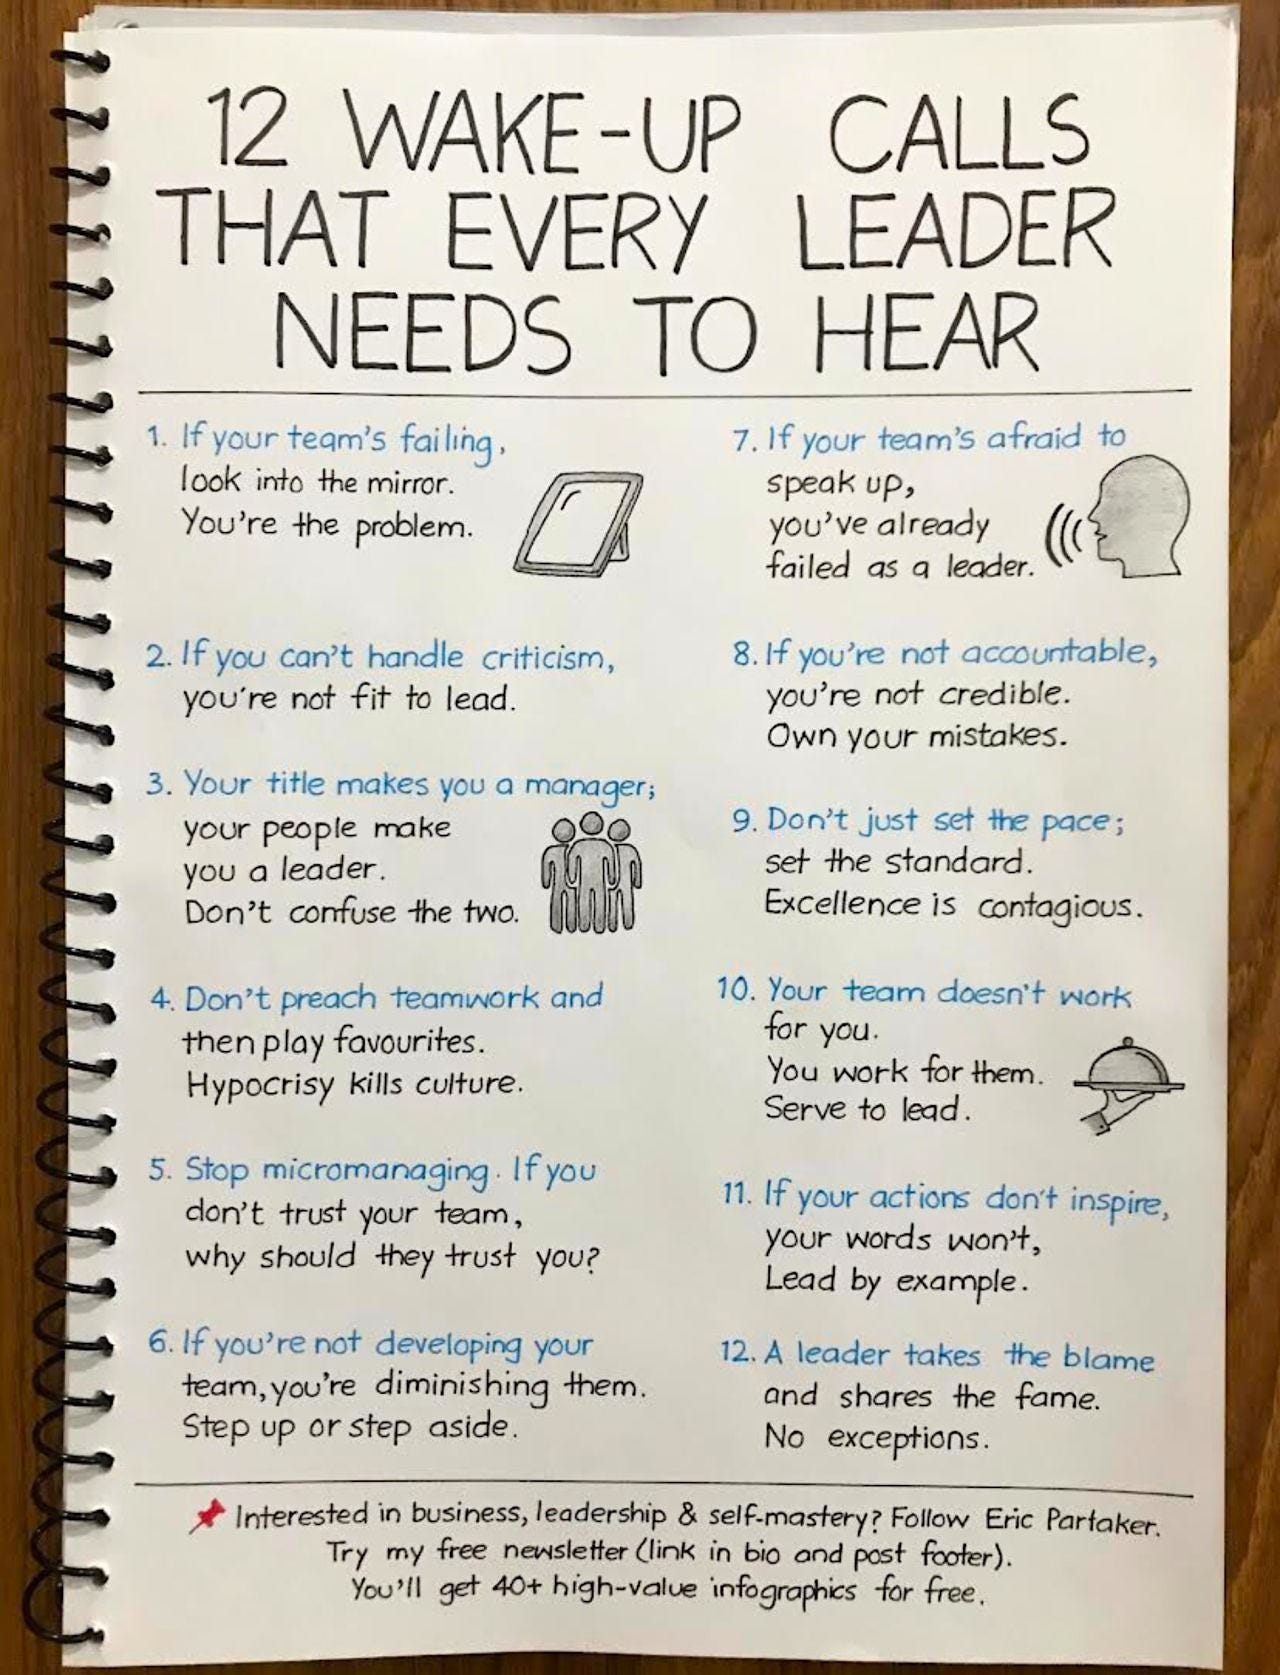 12 WAKE-UP CALLS
THAT EVERY LEADER
NEEDS TO HEAR
1. If your team's failing,
look into the mirror.
You're the problem.
2. If you can't handle criticism,
you're not fit to lead.
3. Your title makes you a manager;
your people make
you a leader.
Don't confuse the two.
4. Don't preach teamwork and
then play favourites.
Hypocrisy kills culture.
5. Stop micromanaging. If you
don't trust your team,
why should they trust you?
6. If you're not developing your
team, you're diminishing them.
Step up or step aside.
7. If your team's afraid to
speak up,
you've already
failed as a leader.
8. If you're not accountable,
you're not credible.
Own your mistakes.
9. Don't just set the pace;
set the standard.
Excellence is contagious.
10. Your team doesn't work
for you.
You work for them.
Serve to lead.
11. If your actions don't inspire,
your words won't,
Lead by example.
12. A leader takes the blame
and shares the fame.
No exceptions.
Interested in business, leadership & self-mastery? Follow Eric Partaker.
Try my free newsletter (link in bio and post footer).
You'll get 40+ high-value infographics for free.